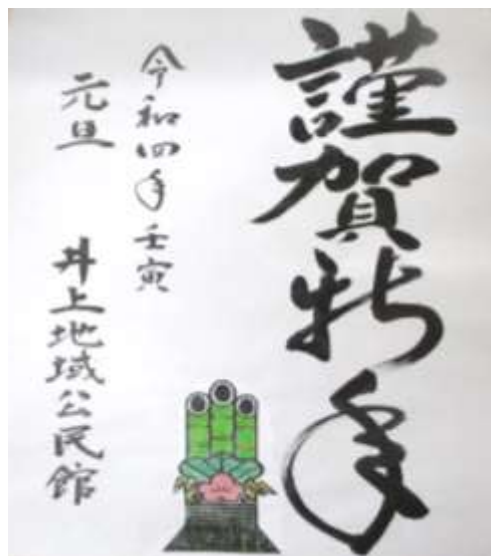 謹賀新年
令和四年壬寅
元旦
井上地域公民館